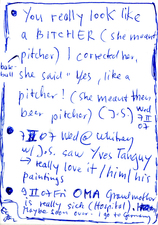 You really look like
a BITCHER (she meant
pitcher) I corrected her,
base-
ball
she said "Yes, like a
pitcher! (she meant then
beer pitcher) (J.S)
Wed
7
II
07
7 II 07 Wed @ Whitney
w/ J.S. saw Yves Tanguy
→ really love it/him/his
paintings
9 II 07 Fri OMA Grandmother
is really sick (Hospital)
Maybe soon over. I go to Germany